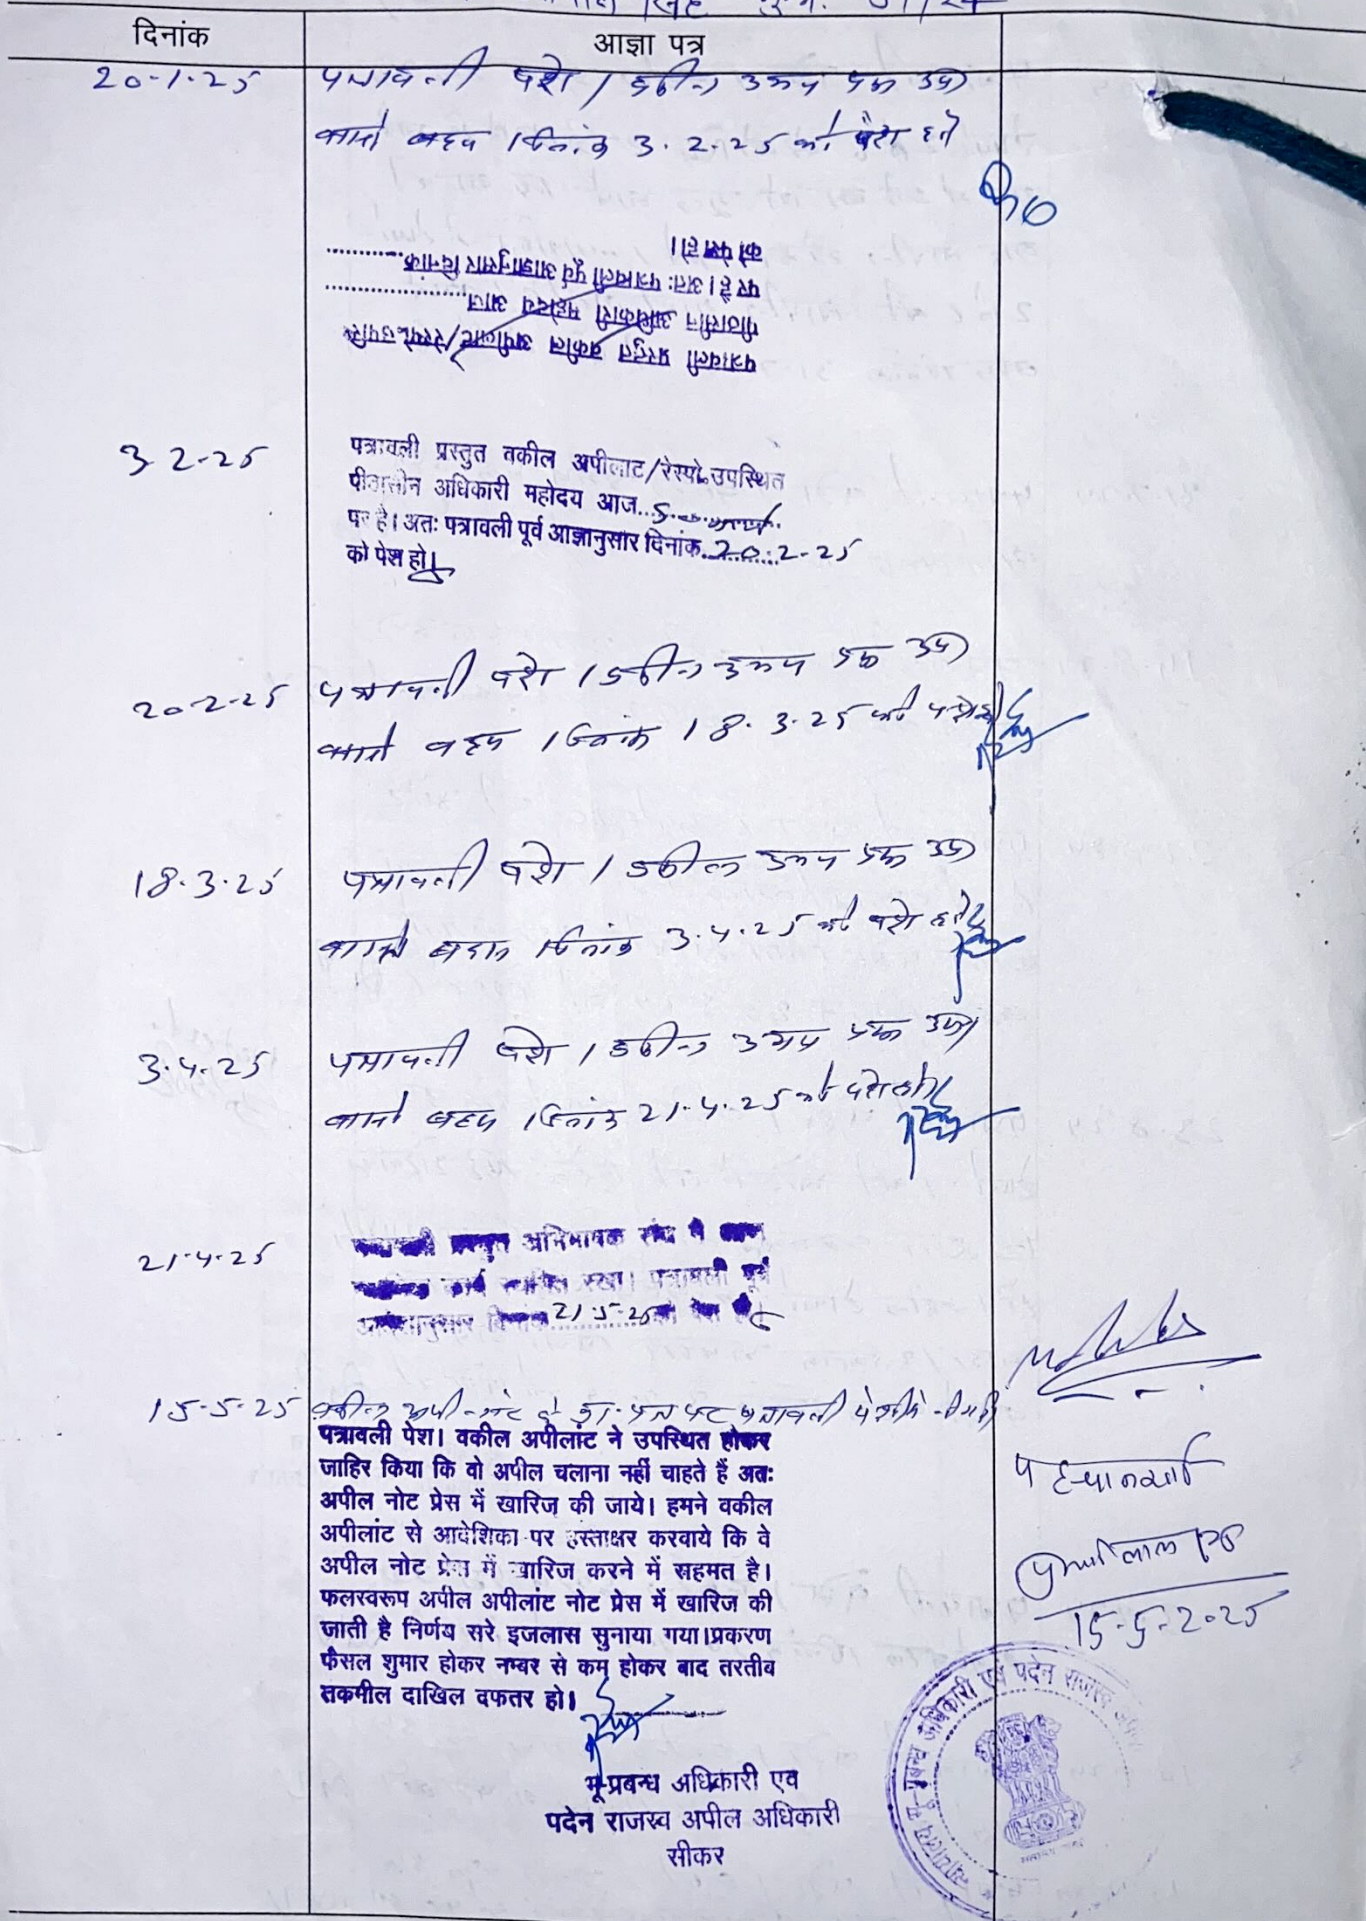 दिनांक
आज्ञा पत्र
20-1-25
पत्रावली पेश / वकील उभय पक्ष उप०
वास्ते बहस दिनांक 3.2.25 को पेश हो
पत्रावली प्रस्तुत वकील अपीलांट/रेस्पो. उपस्थित
पीठासीन अधिकारी महोदय आज..................
पर है। अतः पत्रावली पूर्व आज्ञानुसार दिनांक............
को पेश हो।
3-2-25
पत्रावली प्रस्तुत वकील अपीलाट/रेस्पो.उपस्थित
पीठासीन अधिकारी महोदय आज...
पर है। अतः पत्रावली पूर्व आज्ञानुसार दिनांक..20.2-25
को पेश हो।
20-2-25
पत्रावली पेश / वकील उभय पक्ष उप०
वास्ते बहस / दिनांक 18.3.25 को पेश हो
18.3.25
पत्रावली पेश / वकील उभय पक्ष उप०
वास्ते बहस दिनांक 3.4.25 को पेश हो
3.4.25
पत्रावली पेश / वकील उभय पक्ष उप०
वास्ते बहस / दिनांक 21.4.25 को पेश हो
21-4-25
प्रस्तुत अभिभाषक संघ ने
कार्य स्थगित रखा। पत्रावली पूर्व
आज्ञानुसार दिनांक 21-5-25 को पेश हो
15-5-25
वकील अपीलांट के प्रा. पत्र पर पत्रावली पेशी में ली गयी
पत्रावली पेश। वकील अपीलांट ने उपस्थित होकर
जाहिर किया कि वो अपील चलाना नहीं चाहते हैं अतः
अपील नोट प्रेस में खारिज की जाये। हमने वकील
अपीलांट से आदेशिका पर हस्ताक्षर करवाये कि वे
अपील नोट प्रेस में खारिज करने में सहमत है।
फलस्वरूप अपील अपीलांट नोट प्रेस में खारिज की
जाती है निर्णय सरे इजलास सुनाया गया।प्रकरण
फैसल शुमार होकर नम्बर से कम होकर बाद तरतीव
तकमील दाखिल दफतर हो।
भू-प्रबन्ध अधिकारी एवं
पदेन राजस्व अपील अधिकारी
सीकर
15-5-2025
न्यायालय भू-प्रबन्ध अधिकारी एवं पदेन राजस्व अपील